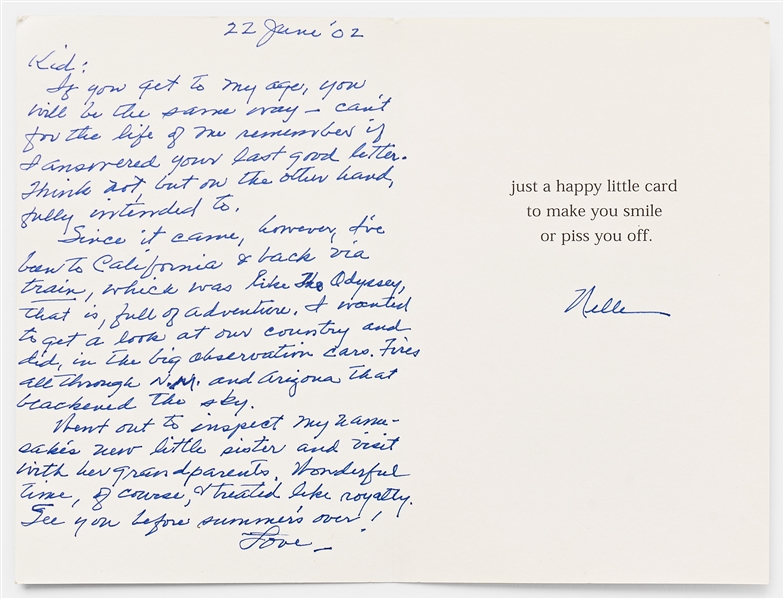 22 June '02
Kid:
If you get to my age, you
will be the same way — can't
for the life of me remember if
I answered your last good letter.
Think not, but on the other hand,
fully intended to.
Since it came, however, I've
been to California & back via
train, which was like The Odyssey,
that is, full of adventure. I wanted
to get a look at our country and
did, in the big observation cars. Fires
all through N.M. and Arizona that
blackened the sky.
Went out to inspect my name-
sake's new little sister and visit
with her grandparents. Wonderful
time, of course, & treated like royalty.
See you before summer's over!
Love —
just a happy little card
to make you smile
or piss you off.
Nelle